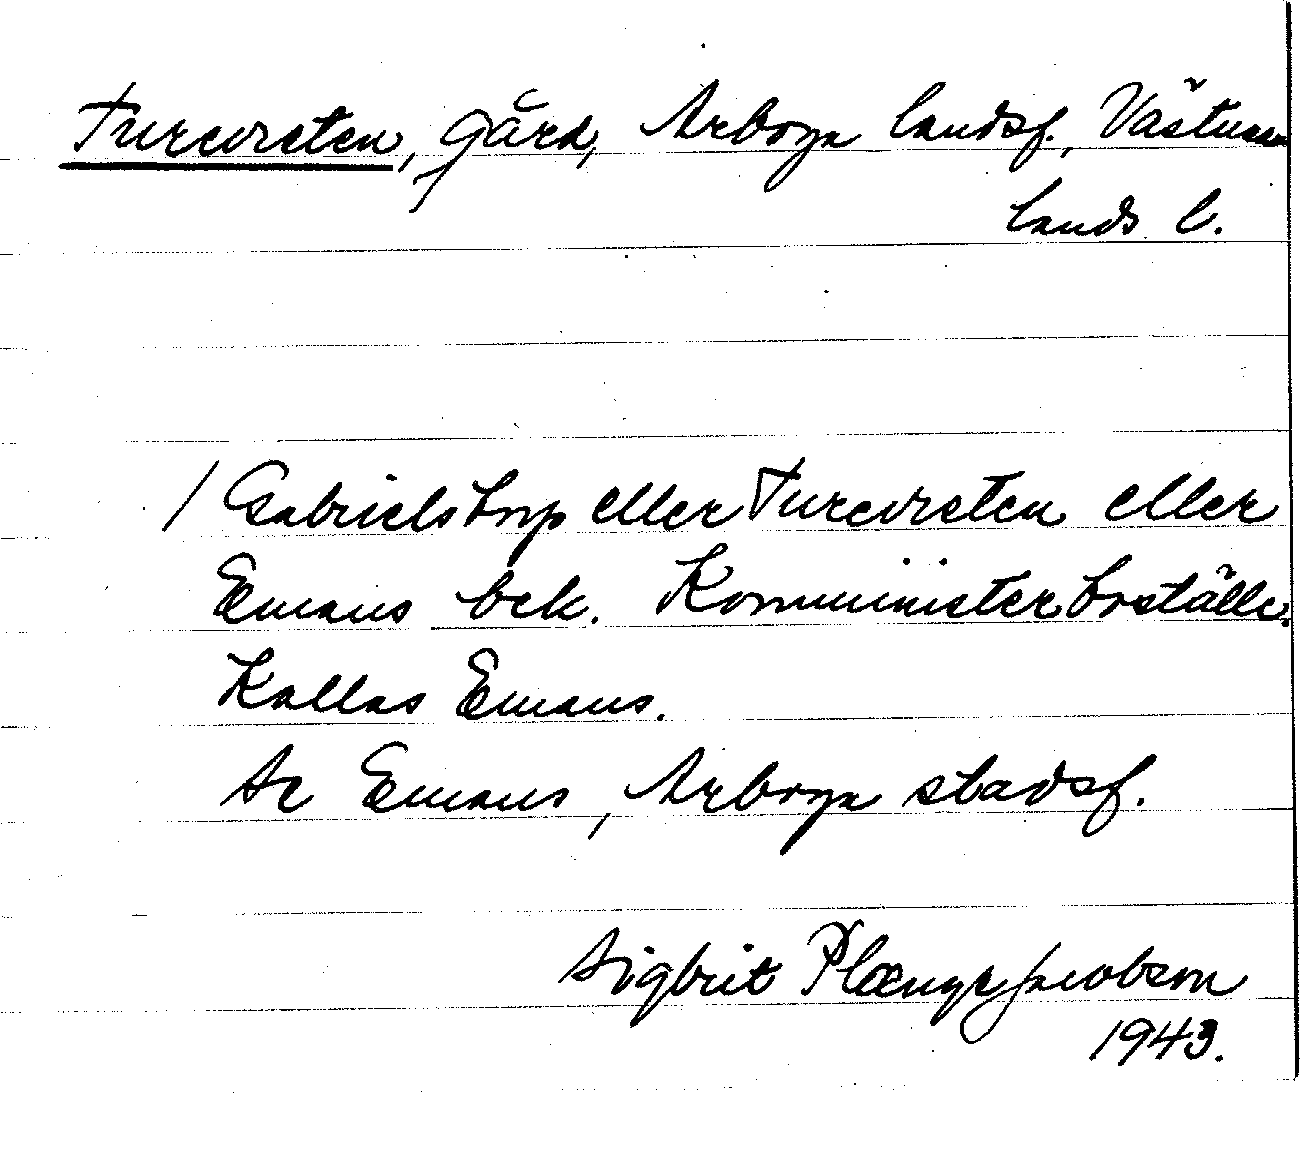 Turevreten, gård, Arboga landsf., Västman
lands l.
/ Gabrielstorp eller Turevreten eller
Emaus bek. Komministerboställe.
Kallas Emaus.
Se Emaus, Arboga stadsf.
Sigbrit Plænge Jacobson
1943.